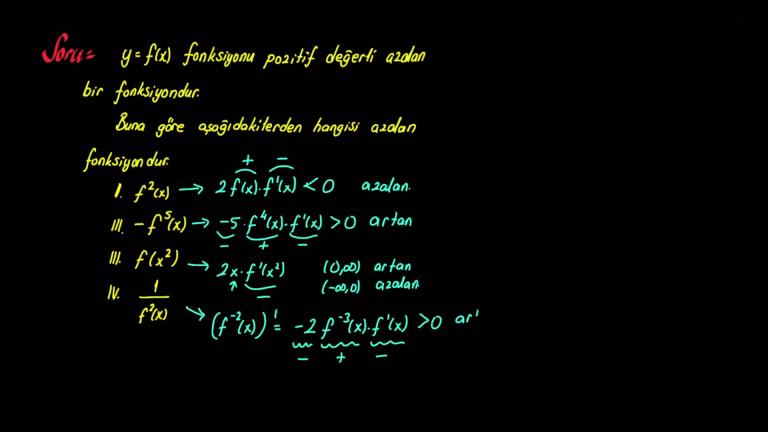 Soru= y=f(x) fonksiyonu pozitif değerli azalan
bir fonksiyondur.
Buna göre aşağıdakilerden hangisi azalan
fonksiyondur.
+ −
I. f²(x) → 2f(x).f'(x) < 0 azalan.
III. -f⁵(x) → -5.f⁴(x).f'(x) > 0 artan
− + −
III. f(x²) → 2x.f'(x²) (0,∞) artan
− (-∞,0) azalan
IV. 1/f²(x) → (f⁻²(x))' = -2 f⁻³(x).f'(x) > 0 ar'
− + −